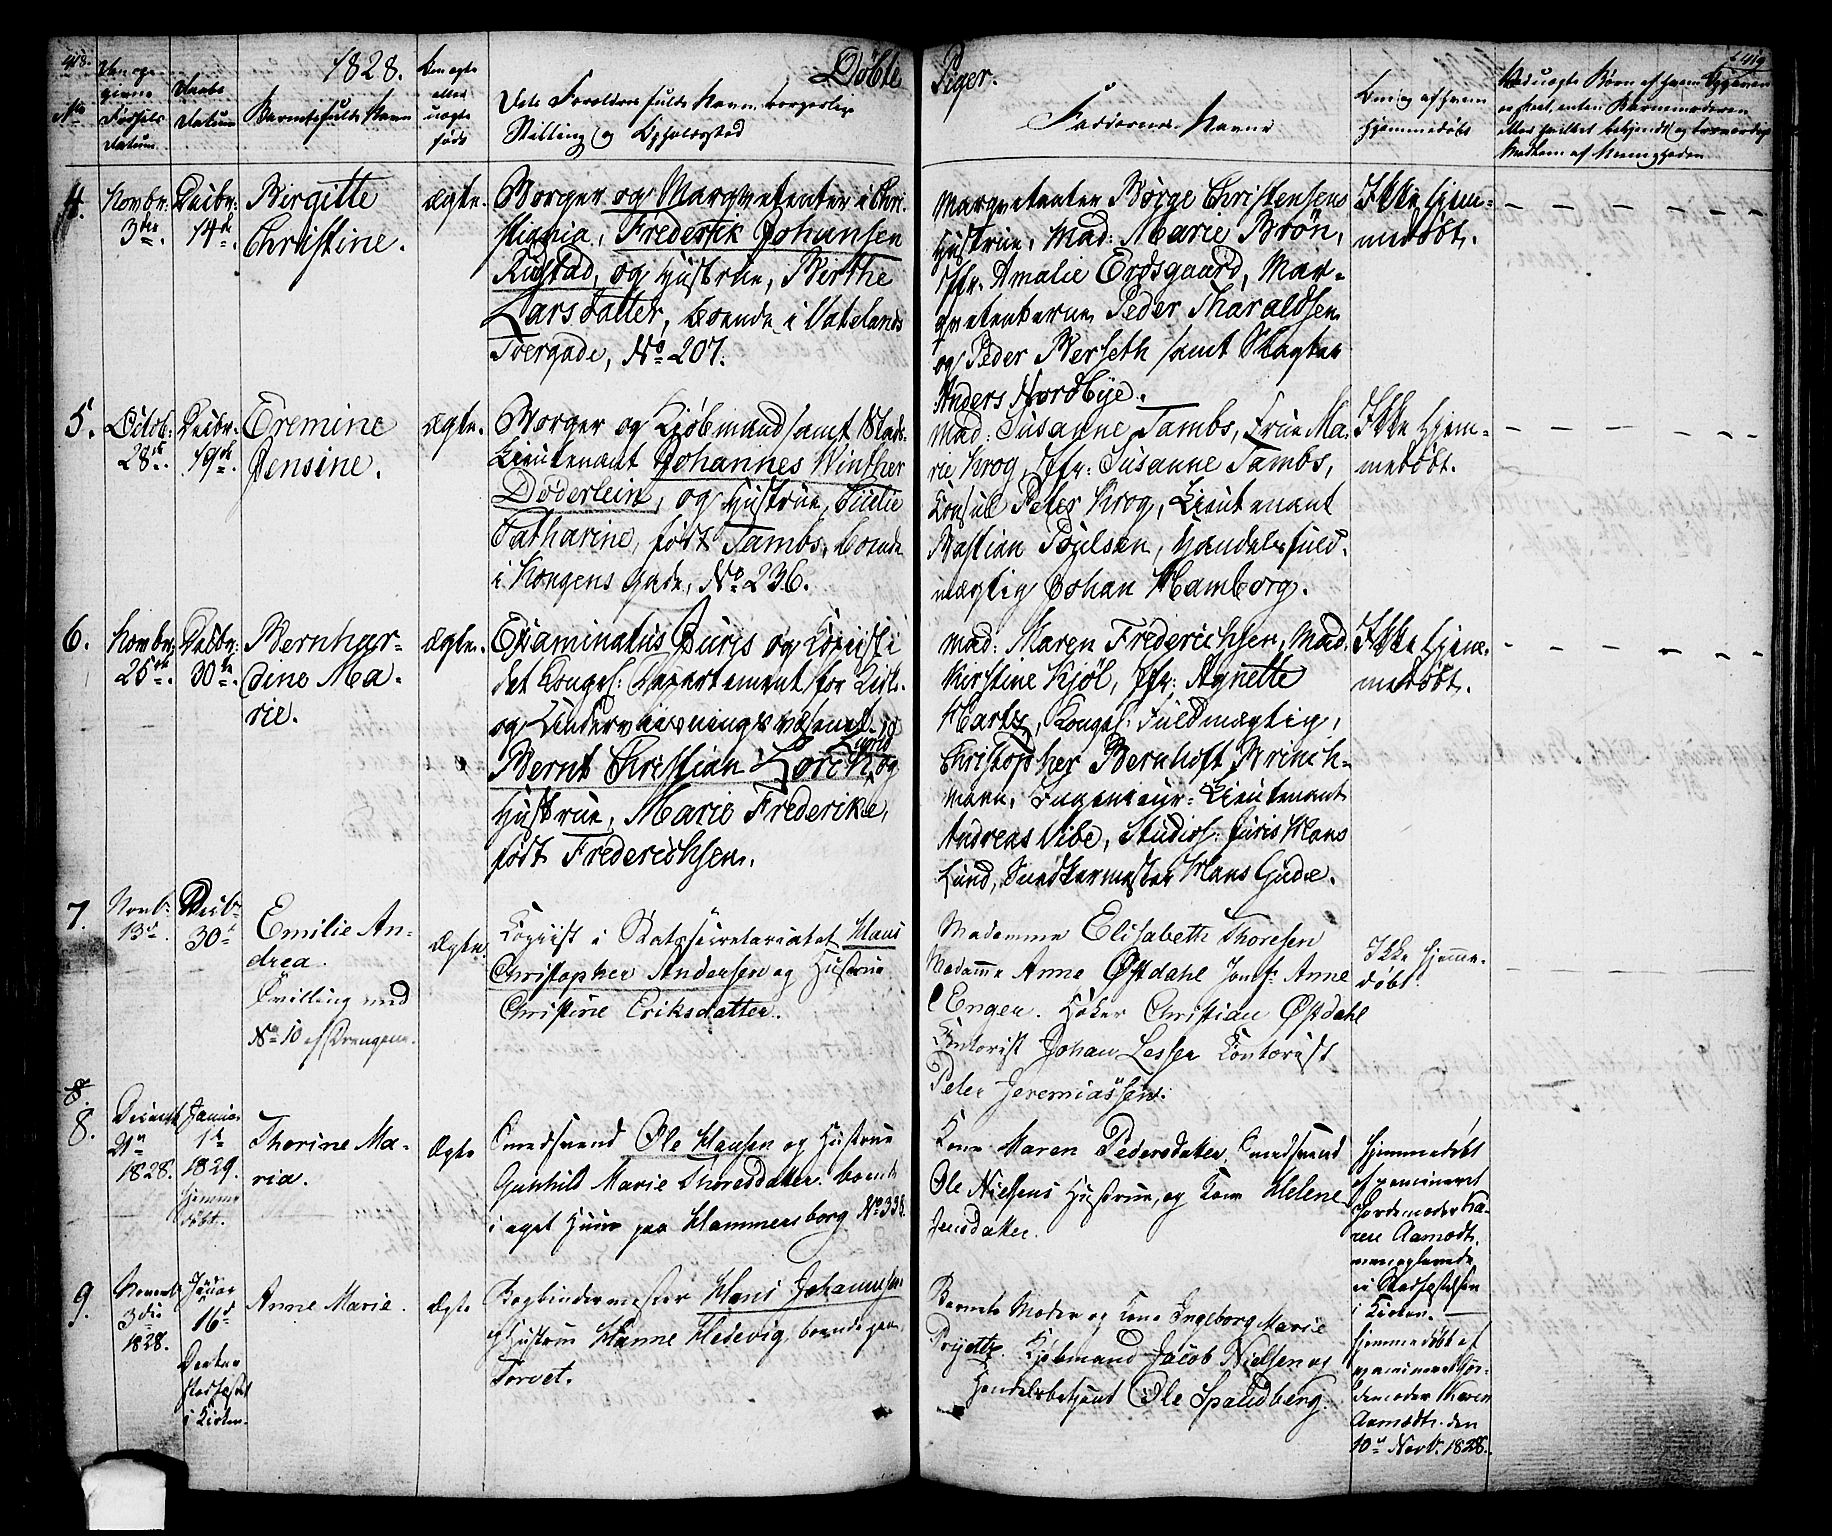 418.
1828.
Døbte
Piger.
419
No
Den opgivne Fødsels Datum
Daabs Datum
Barnets fulde Navn
Om ægte eller uægte født
Dets Forældres fulde Navn, borgerlige
Stilling og Opholdssted
Faddernes Navne
Om og af hvem
hjemmedøbt
4.
Novbr:
3die
Decbr:
14de
Birgitte
Christine.
ægte.
Borger og Marqvetenter i Chri-
stiania, Frederik Johansen
Rustad, og Hustrue, Berthe
Larsdatter, boende i Vatelands
Tvergade, No 207.
Marqvetenter Børge Christensens
Hustrue, Mad: Marie Brøn,
Jfr. Amalie Erdsgaard, Mar-
qvetenterne Peder Tharaldsen
og Peder Berseth samt Slagter
Anders Nordbye.
Ikke hjem-
medøbt.
5.
Octob:
28de
Decbr:
19de
Eremine
Jensine.
ægte.
Borger og Kjøbmand samt Stads
Lieutenant Johannes Winther
Døderlein, og Hustrue, Cicilie
Catharine, født Tambs, boende
i Kongens Gade, No 236.
Mad: Susanne Tambs, Frue Ma-
rie Krog, Jfr: Susanne Tambs,
Konsul Peter Krog, Lieutenant
Bastian Poulsen, Handelsfuld-
mægtig Johan Hamborg.
Ikke hjem-
medøbt.
6.
Novbr:
25de
Decbr:
30te
Bernhar-
dine Ma-
rie.
ægte.
Examinatus Juris og Kopist i
det kongel: Departement for Kirke-
og Underviisningsvæsenet,
Bernt Christian Lorich, og
Hustrue, Marie Frederike,
født Frederichsen.
Mad: Maren Frederichsen, Mad.
Kirstine Kjøl, Jfr: Agnette
Hartz, Kongel: Fuldmægtig,
Christopher Bernhoft Brinch-
mann, Ingenieur-Lieutenant
Andreas Vibe, Studios: juris Hans
Lund, Snedkermester Hans Gude.
Ikke hjem-
medøbt.
7.
Novbr.
13de
Decbr
30te
Emilie An-
drea.
Tvilling med
No 10 af Drengene.
Ægte.
Kopist i Statssecretariatet Hans
Christopher Andersen og Hustrue
Christine Eriksdatter.
Madamme Elisabeth Thoresen
Madamme Anne Østdahl Jomf. Anne
Enger. Høker Christian Østdahl
Kontorist Johan Lessen Kontorist
Peter Jeremiassen.
Ikke hjemme-
døbt.
8.
8.
Decemb
21de
1828.
Januar
1te
1829.
hjemme
døbt.
Thorine Ma-
ria.
Ægte
Smedsvend Ole Hansen og Hustrue
Gunhild Marie Thoresdatter. boende
i eget Huus paa Hammersborg No 338.
Kone Maren Pedersdatter, Smedsvend
Ole Nielsens Hustrue, og Kone Helene
Jensdatter.
Hjemmedøbt
af examineret
Jordemoder Ka-
ren Aamodt.
i Kirken.
9.
Novemb
3die
1828.
Januar
16de
Derefter
stadfæstet
i Kirken.
Anne Marie.
Ægte
Bogbindermester Hans Johannesen
og Hustrue Hanne Hedevig, boende paa
Torvet.
Barnets Moder og Kone Ingeborg Marie
Prydtz. Kjøbmand Jacob Nielsen og
Handelsbetjent Ole Spandberg.
Hjemmedøbt af
examineret Jor-
demoder Karen
Aamodt. den
10de Novb. 1828.